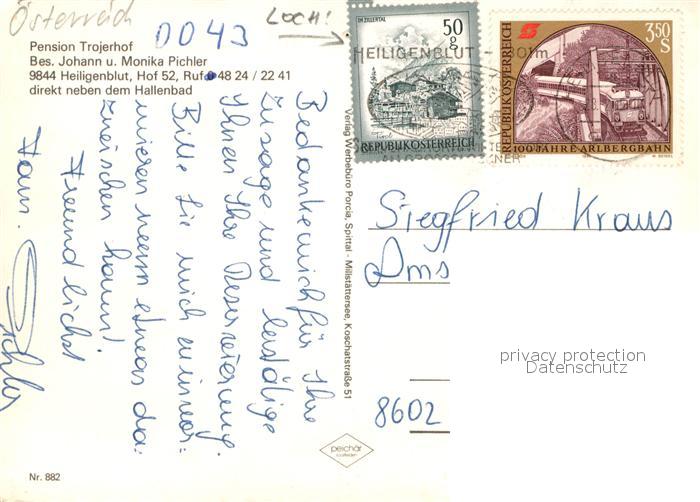 Österreich
0043
LOCH!
Pension Trojerhof
Bes. Johann u. Monika Pichler
9844 Heiligenblut, Hof 52, Ruf 0 48 24 / 22 41
direkt neben dem Hallenbad
Bedanke mich für Ihre
Zusage und bestätige
Ihnen Ihre Reservierung.
Bitte Sie mich zu
wenn etwas da-
zwischen kommt!
Freundlichst
Fam. Pichler
Nr. 882
Verlag Werbebüro Porcia, Spittal - Millstättersee, Koschatstraße 51
IM ZILLERTAL
50
g
Tirol
REPUBLIK ÖSTERREICH
HEILIGENBLUT - 1301m
GLOCKNER
REPUBLIK ÖSTERREICH
3.50
S
100 JAHRE ARLBERGBAHN
Siegfried Kraus
Dms
8602
privacy protection
Datenschutz
peichär